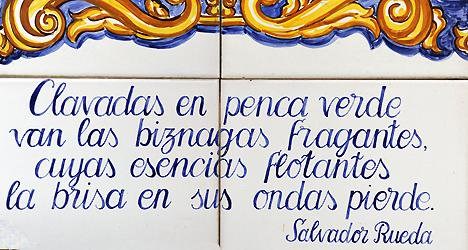 Clavadas en penca verde
van las biznagas fragantes,
cuyas esencias flotantes
la brisa en sus ondas pierde.
Salvador Rueda